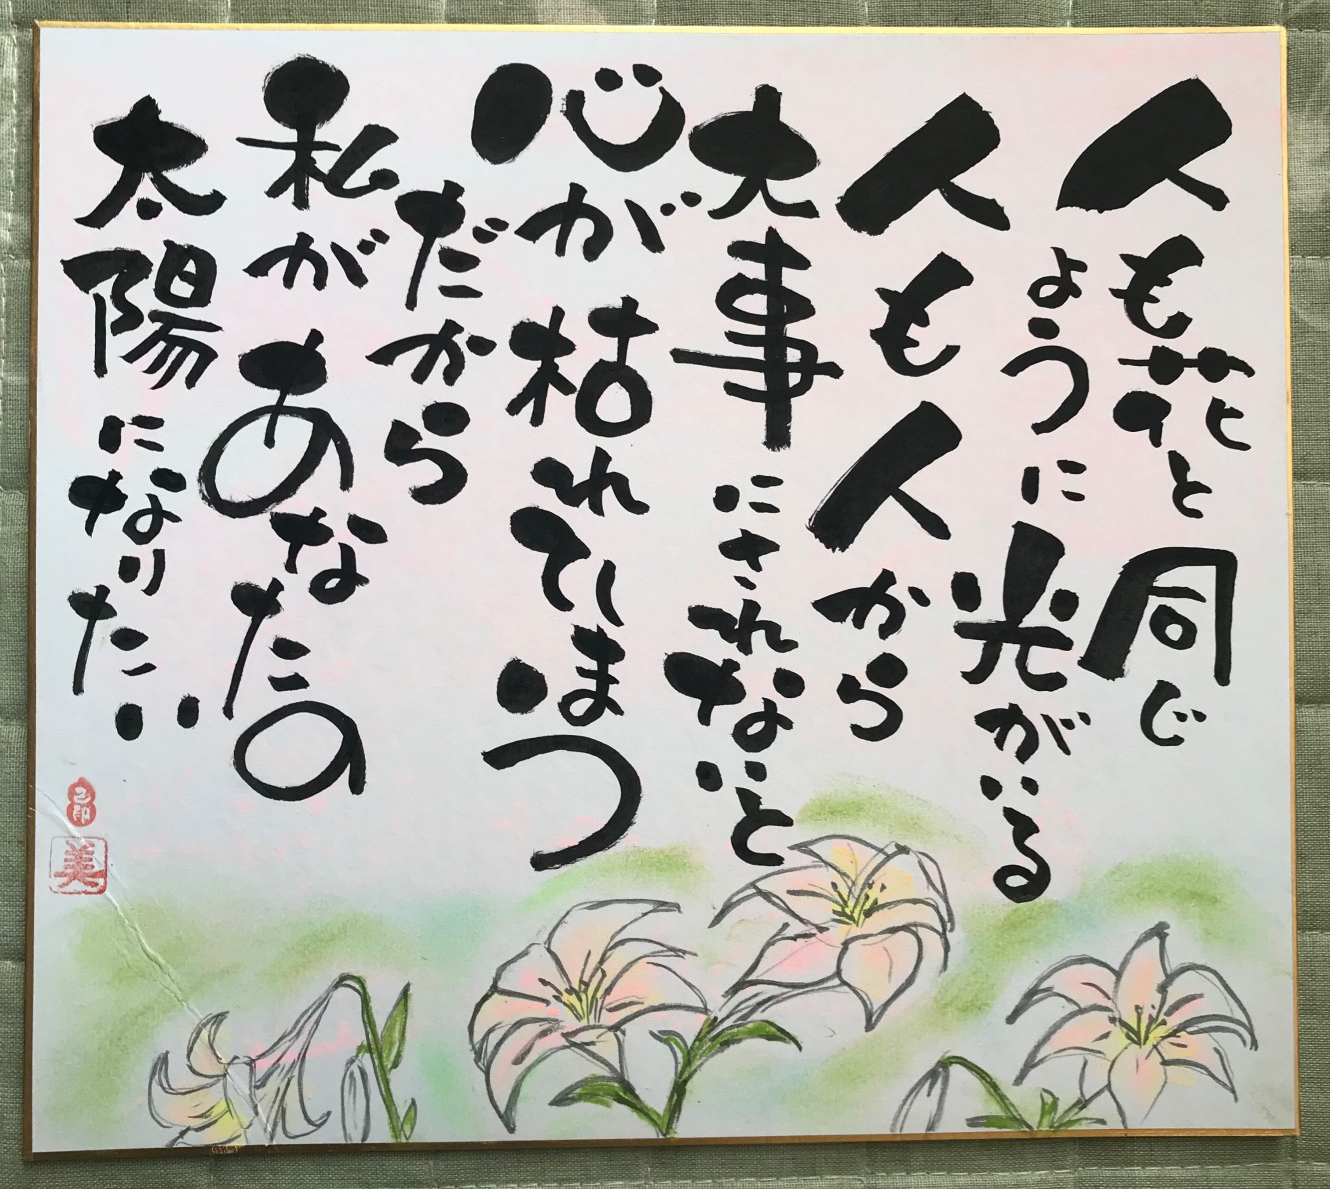 人も花と同じ
ように光がいる
人も人から
大事にされないと
心が枯れてしまう
だから
私があなたの
太陽になりたい
美